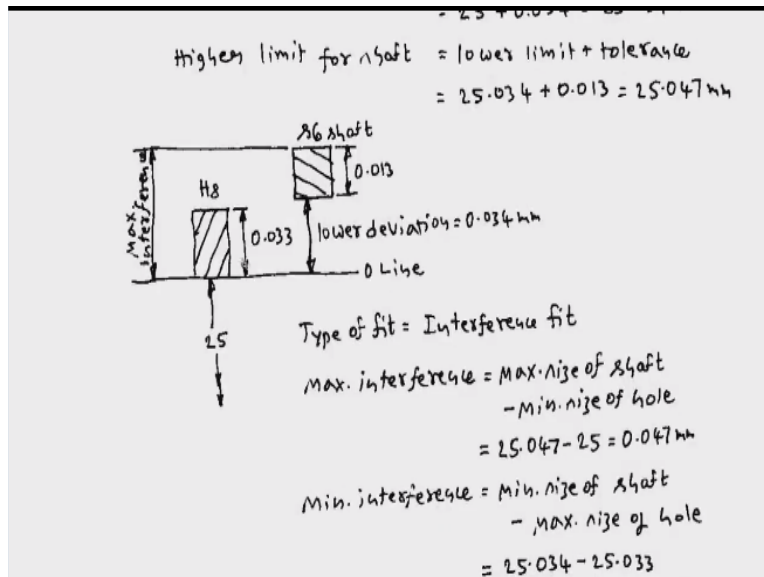 Higher limit for shaft = lower limit + tolerance
= 25.034 + 0.013 = 25.047 mm
s6 shaft
0.013
H8
Max. interference
0.033
lower deviation = 0.034 mm
0 Line
25
Type of fit = Interference fit
Max. interference = Max. size of shaft
- Min. size of hole
= 25.047 - 25 = 0.047 mm
Min. interference = Min. size of shaft
- Max. size of hole
= 25.034 - 25.033